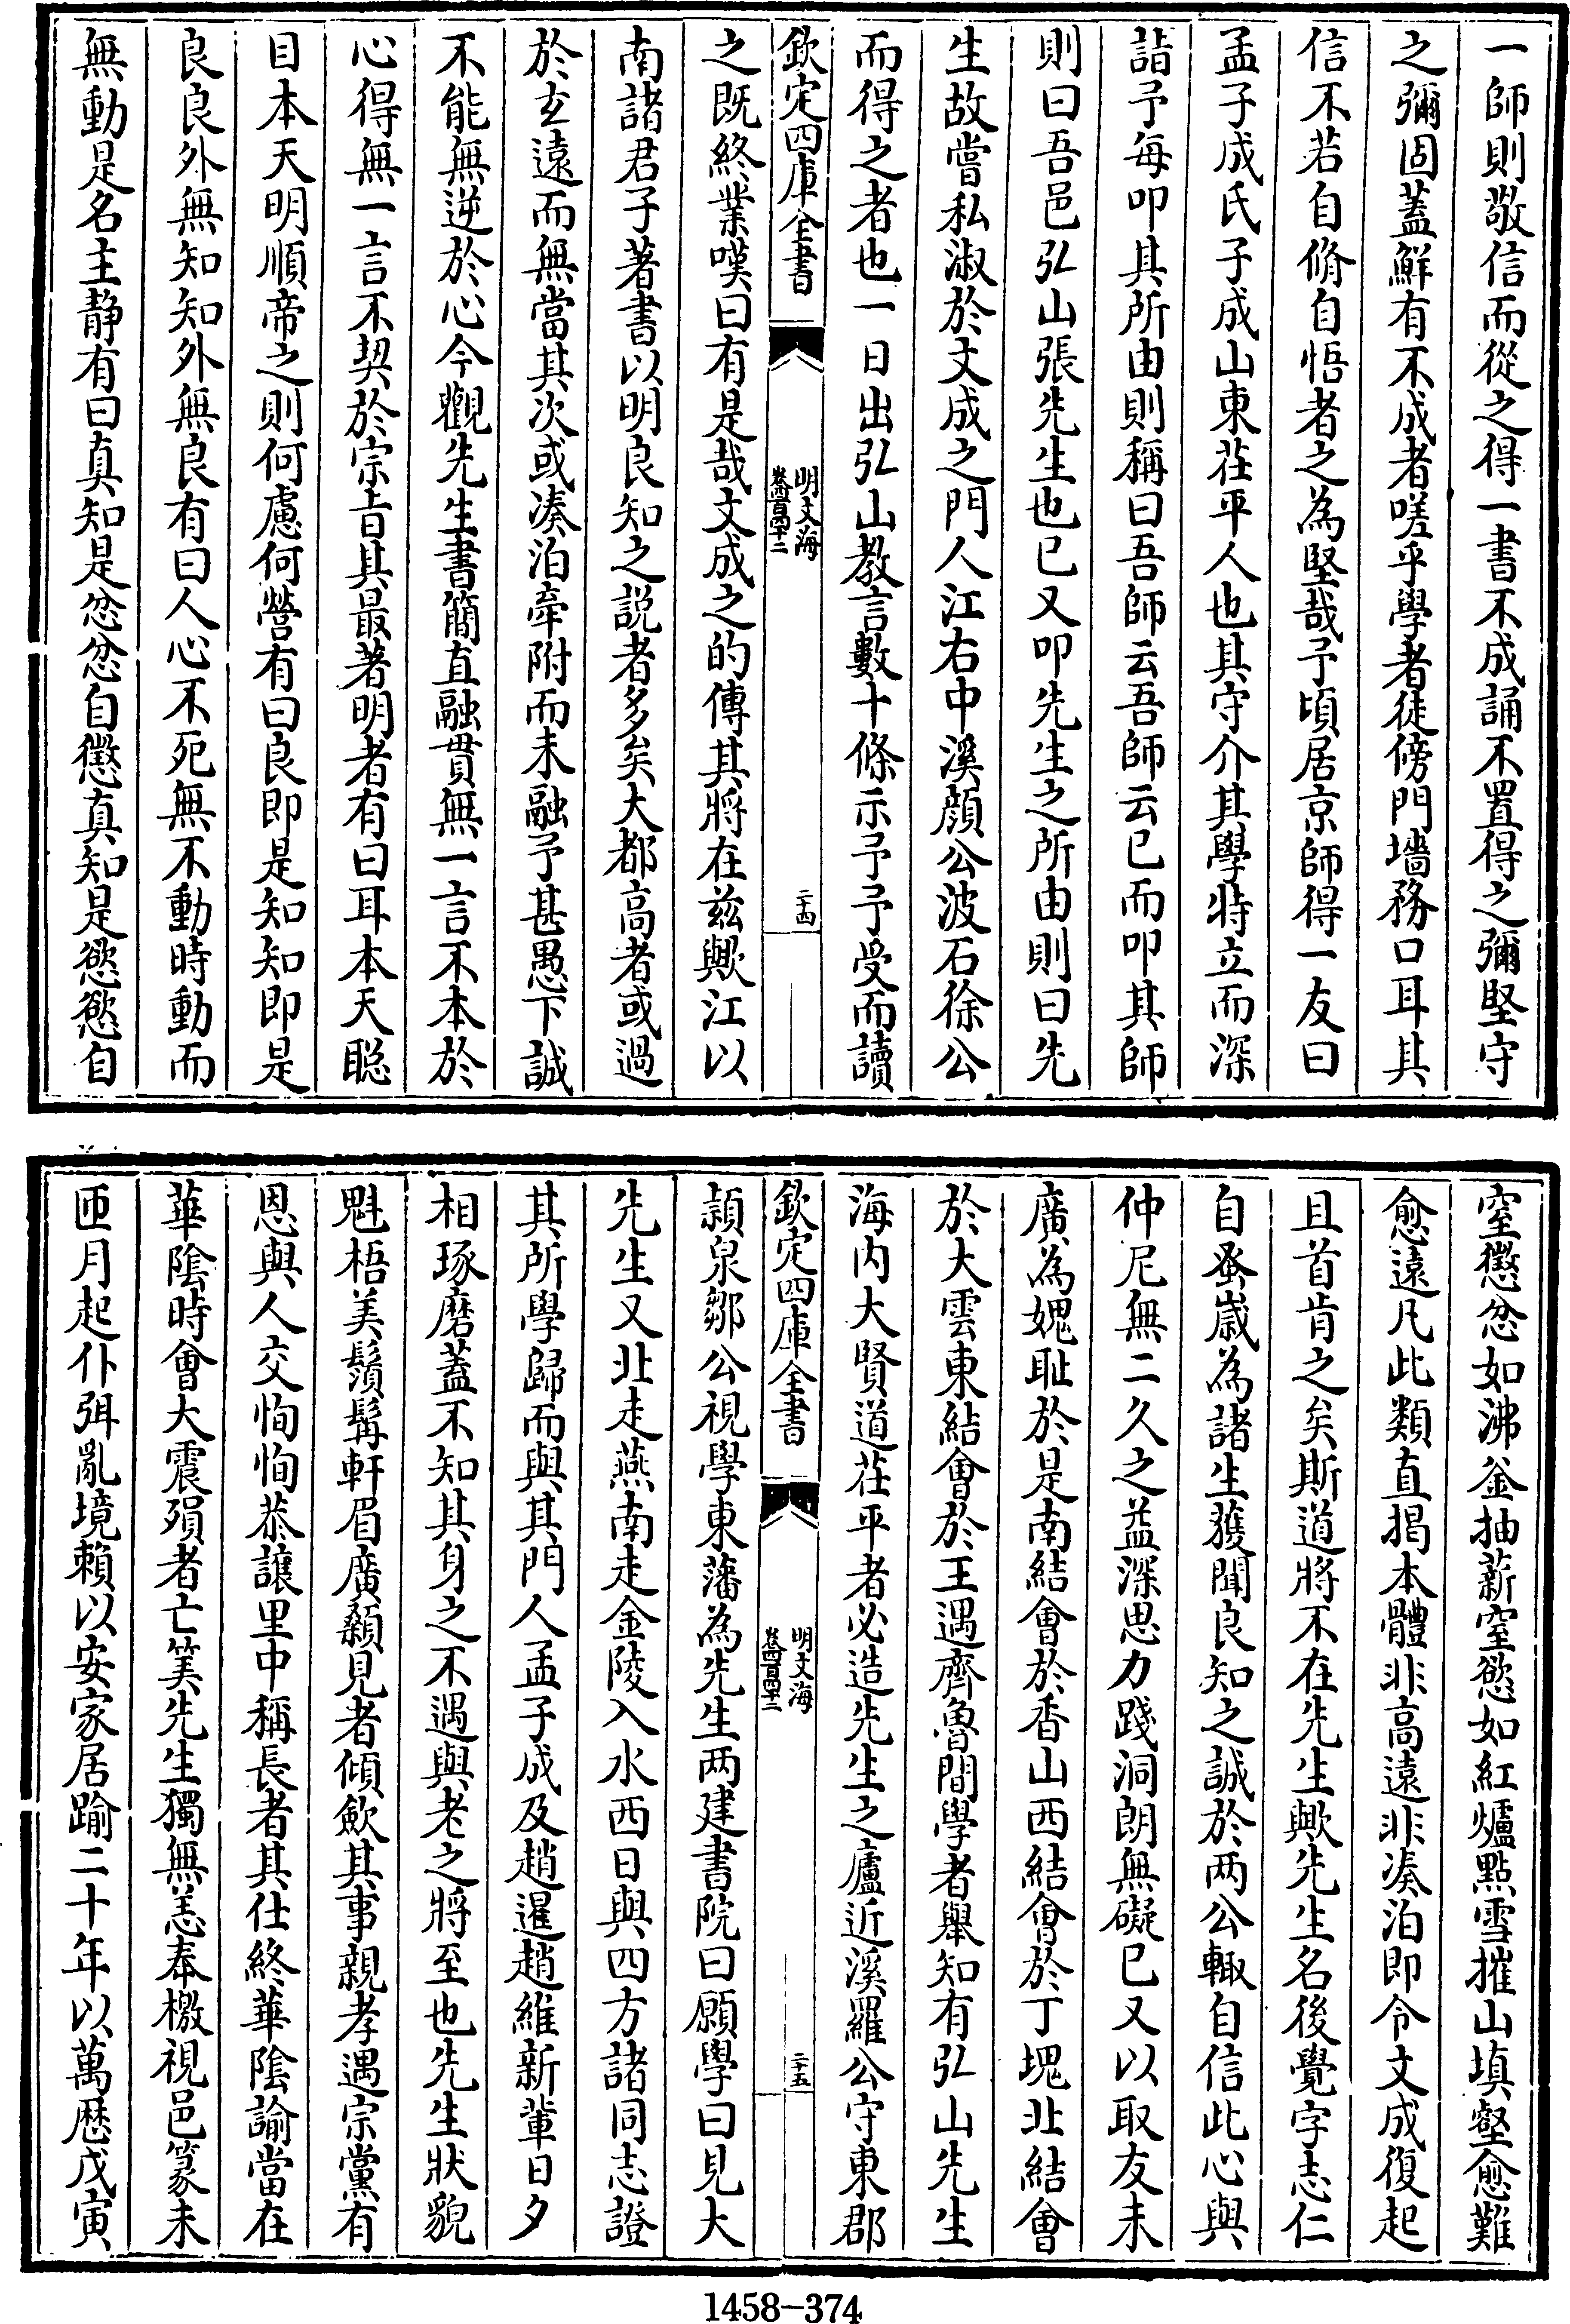 一師則敬信而從之得一書不成誦不置得之彌堅守
之彌固蓋鮮有不成者嗟乎學者徒傍門墻務口耳其
信不若自脩自悟者之為堅哉予頃居京師得一友曰
孟子成氏子成山東茌平人也其守介其學特立而深
詣予每叩其所由則稱曰吾師云吾師云已而叩其師
則曰吾邑弘山張先生也已又叩先生之所由則曰先
生故嘗私淑於文成之門人江右中溪顔公波石徐公
而得之者也一日出弘山教言數十條示予予受而讀
欽定四庫全書
明文海
卷四百四十二
二十四
之既終業嘆曰有是哉文成之的傳其將在兹歟江以
南諸君子著書以明良知之説者多矣大都高者或過
於玄遠而無當其次或湊泊牽附而未融予甚愚下誠
不能無逆於心今觀先生書簡直融貫無一言不本於
心得無一言不契於宗旨其最著明者有曰耳本天聰
目本天明順帝之則何慮何營有曰良即是知知即是
良良外無知知外無良有曰人心不死無不動時動而
無動是名主静有曰真知是忿忿自懲真知是慾慾自
窒懲忿如沸釜抽薪窒慾如紅爐點雪摧山填壑愈難
愈遠凡此類直揭本體非高遠非湊泊即令文成復起
且首肯之矣斯道將不在先生歟先生名後覺字志仁
自蚤嵗為諸生獲聞良知之誠於两公輙自信此心與
仲尼無二久之益深思力踐洞朗無礙已又以取友未
廣為媿耻於是南結會於香山西結會於丁塊北結會
於大雲東結會於王遇齊魯間學者舉知有弘山先生
海内大賢道茌平者必造先生之廬近溪羅公守東郡
欽定四庫全書
明文海
卷四百四十二
二十五
頴泉鄒公視學東藩為先生两建書院曰願學曰見大
先生又北走燕南走金陵入水西日與四方諸同志證
其所學歸而與其門人孟子成及趙暹趙維新軰日夕
相琢磨蓋不知其身之不遇與老之將至也先生狀貌
魁梧美鬚髯軒眉廣顙見者傾歛其事親孝遇宗黨有
恩與人交恂恂恭讓里中稱長者其仕終華隂諭當在
華隂時會大震殞者亡筭先生獨無恙奉檄視邑篆未
匝月起仆弭亂境賴以安家居踰二十年以萬厯戊寅
1458-374